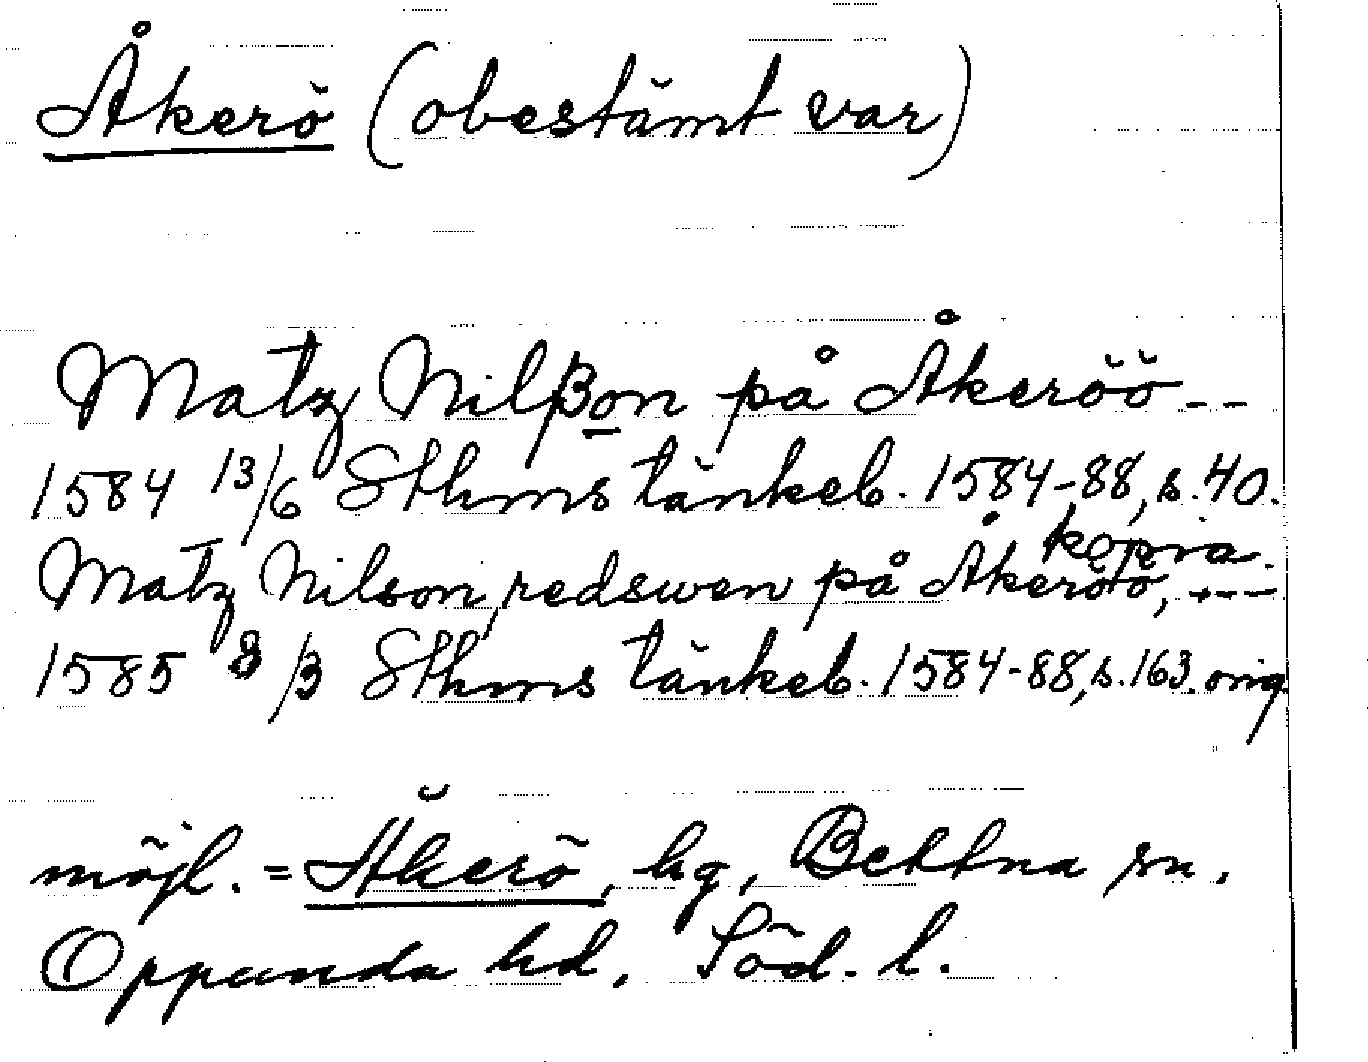 Åkerö (obestämt var)
Matz Nilßon på Åkeröö --
1584 13/6 Sthms tänkeb. 1584-88, s. 40.
kopia.
Matz Nilson, redswen på Åkeröö, ---
1585 8/3 Sthms tänkeb. 1584-88, s. 163. orig
möjl. = Åkerö, hg, Bettna sn,
Oppunda hd, Söd. l.